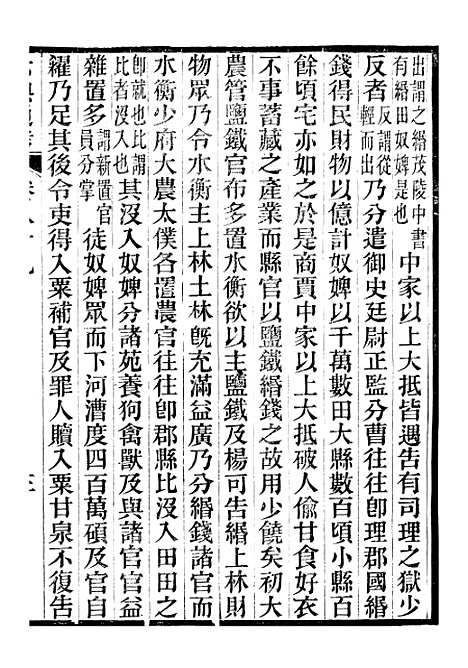 出謂之緡茂陵中書有緡田奴婢是也中家以上大抵皆遇告有司理之獄少
反者反謂從輕而出乃分遣御史廷尉正監分曹往往卽理郡國緡
錢得民財物以億計奴婢以千萬數田大縣數百頃小縣百
餘頃宅亦如之於是商賈中家以上大抵破人偷甘食好衣
不事蓄藏之產業而縣官以鹽鐵緡錢之故用少饒矣初大
農管鹽鐵官布多置水衡欲以主鹽鐵及楊可告緡上林財
物眾乃令水衡主上林土林旣充滿益廣乃分緡錢諸官而
水衡少府大農太僕各置農官往往卽郡縣比沒入田田之
卽就也比謂比者沒入也其沒入奴婢分諸苑養狗禽獸及與諸官官益
雜置多謂新置官員分掌徒奴婢眾而下河漕度四百萬碩及官自
糴乃足其後令吏得入粟補官及罪人贖入粟甘泉不復告